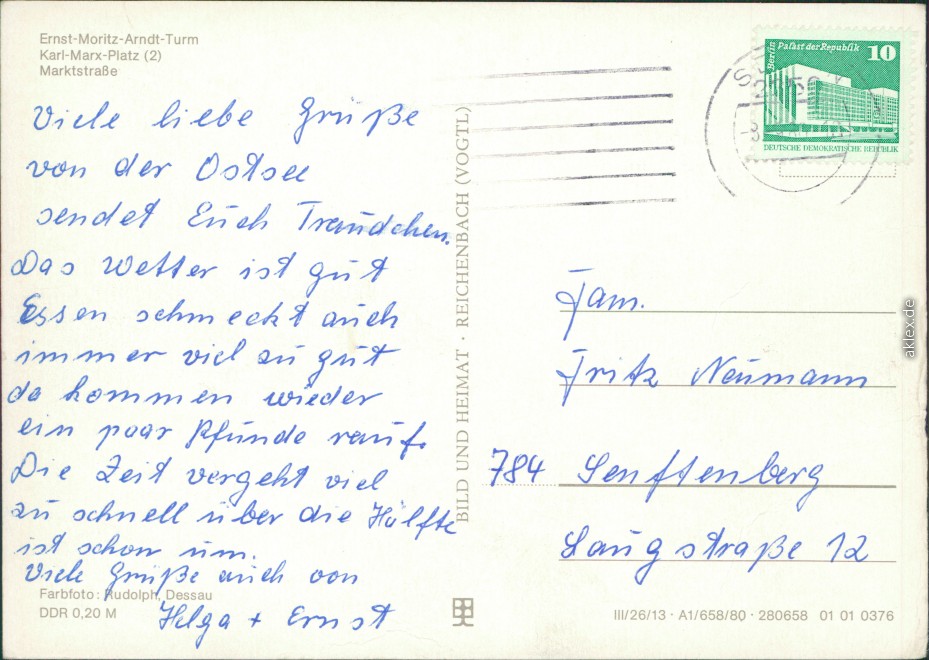 Ernst-Moritz-Arndt-Turm
Karl-Marx-Platz (2)
Marktstraße
Viele liebe Grüße
von der Ostsee
sendet Euch Traudchen.
Das Wetter ist gut
Essen schmeckt auch
immer viel zu gut
da kommen wieder
ein paar Pfunde rauf.
Die Zeit vergeht viel
zu schnell über die Hälfte
ist schon um.
Viele Grüße auch von
Helga + Ernst
Farbfoto: Rudolph, Dessau
DDR 0,20 M
BILD UND HEIMAT · REICHENBACH (VOGTL)
Berlin
Palast der Republik
10
DEUTSCHE DEMOKRATISCHE REPUBLIK
Fam.
Fritz Neumann
784 Senftenberg
Laugstraße 12
III/26/13 · A1/658/80 · 280658 01 01 0376
aklex.de